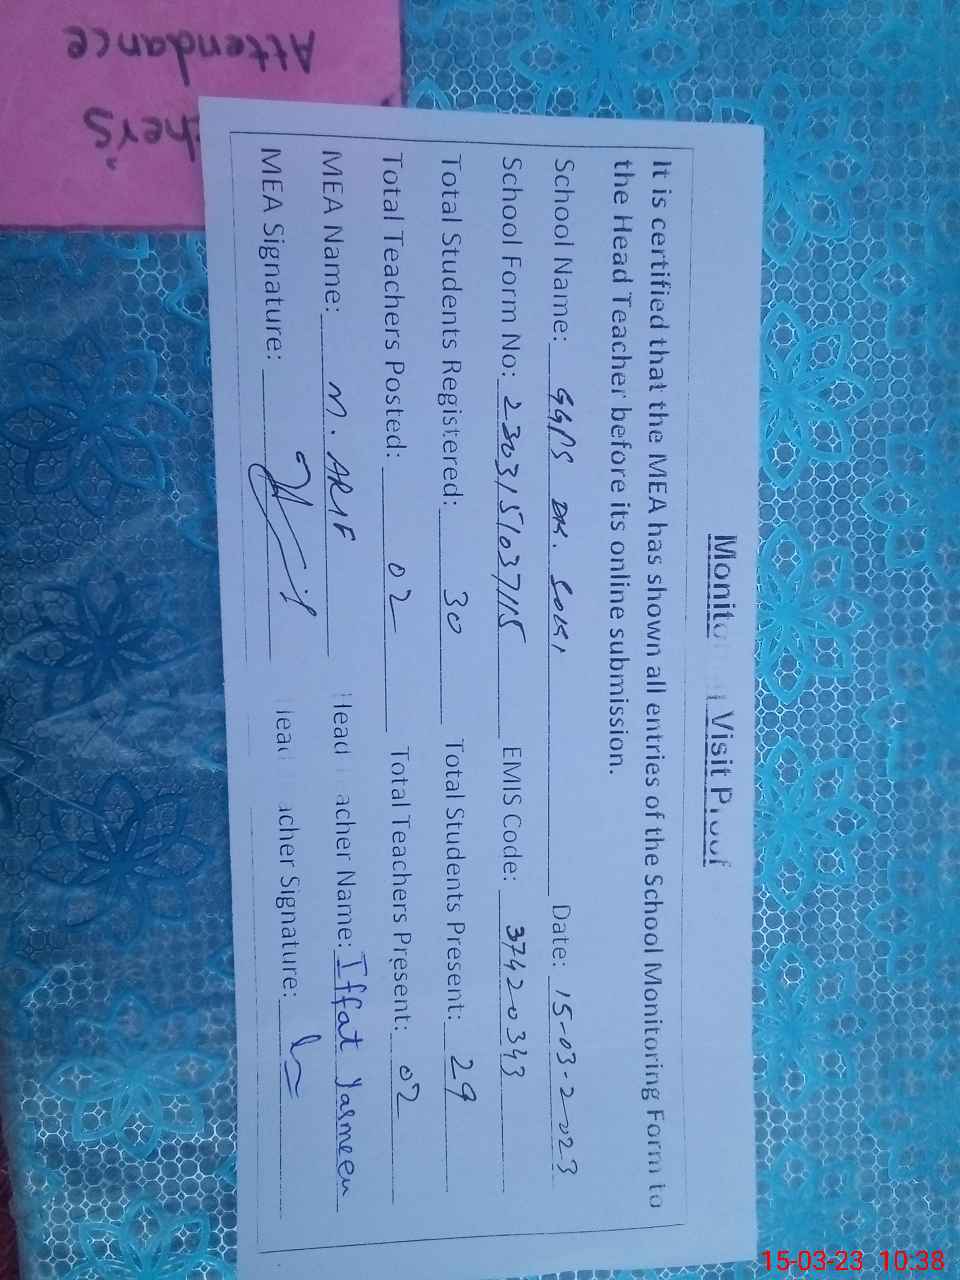 Monitoring Visit Proof
It is certified that the MEA has shown all entries of the School Monitoring Form to
the Head Teacher before its online submission.
School Name: GGPS DK. Date: 15-03-2023
School Form No: 230315103715 EMIS Code: 37420343
Total Students Registered: 30 Total Students Present: 29
Total Teachers Posted: 02 Total Teachers Present: 02
MEA Name: M. ARIF Head Teacher Name: Iffat Yasmeen
MEA Signature: Head Teacher Signature:
cher's
Attendance
15-03-23 10:38